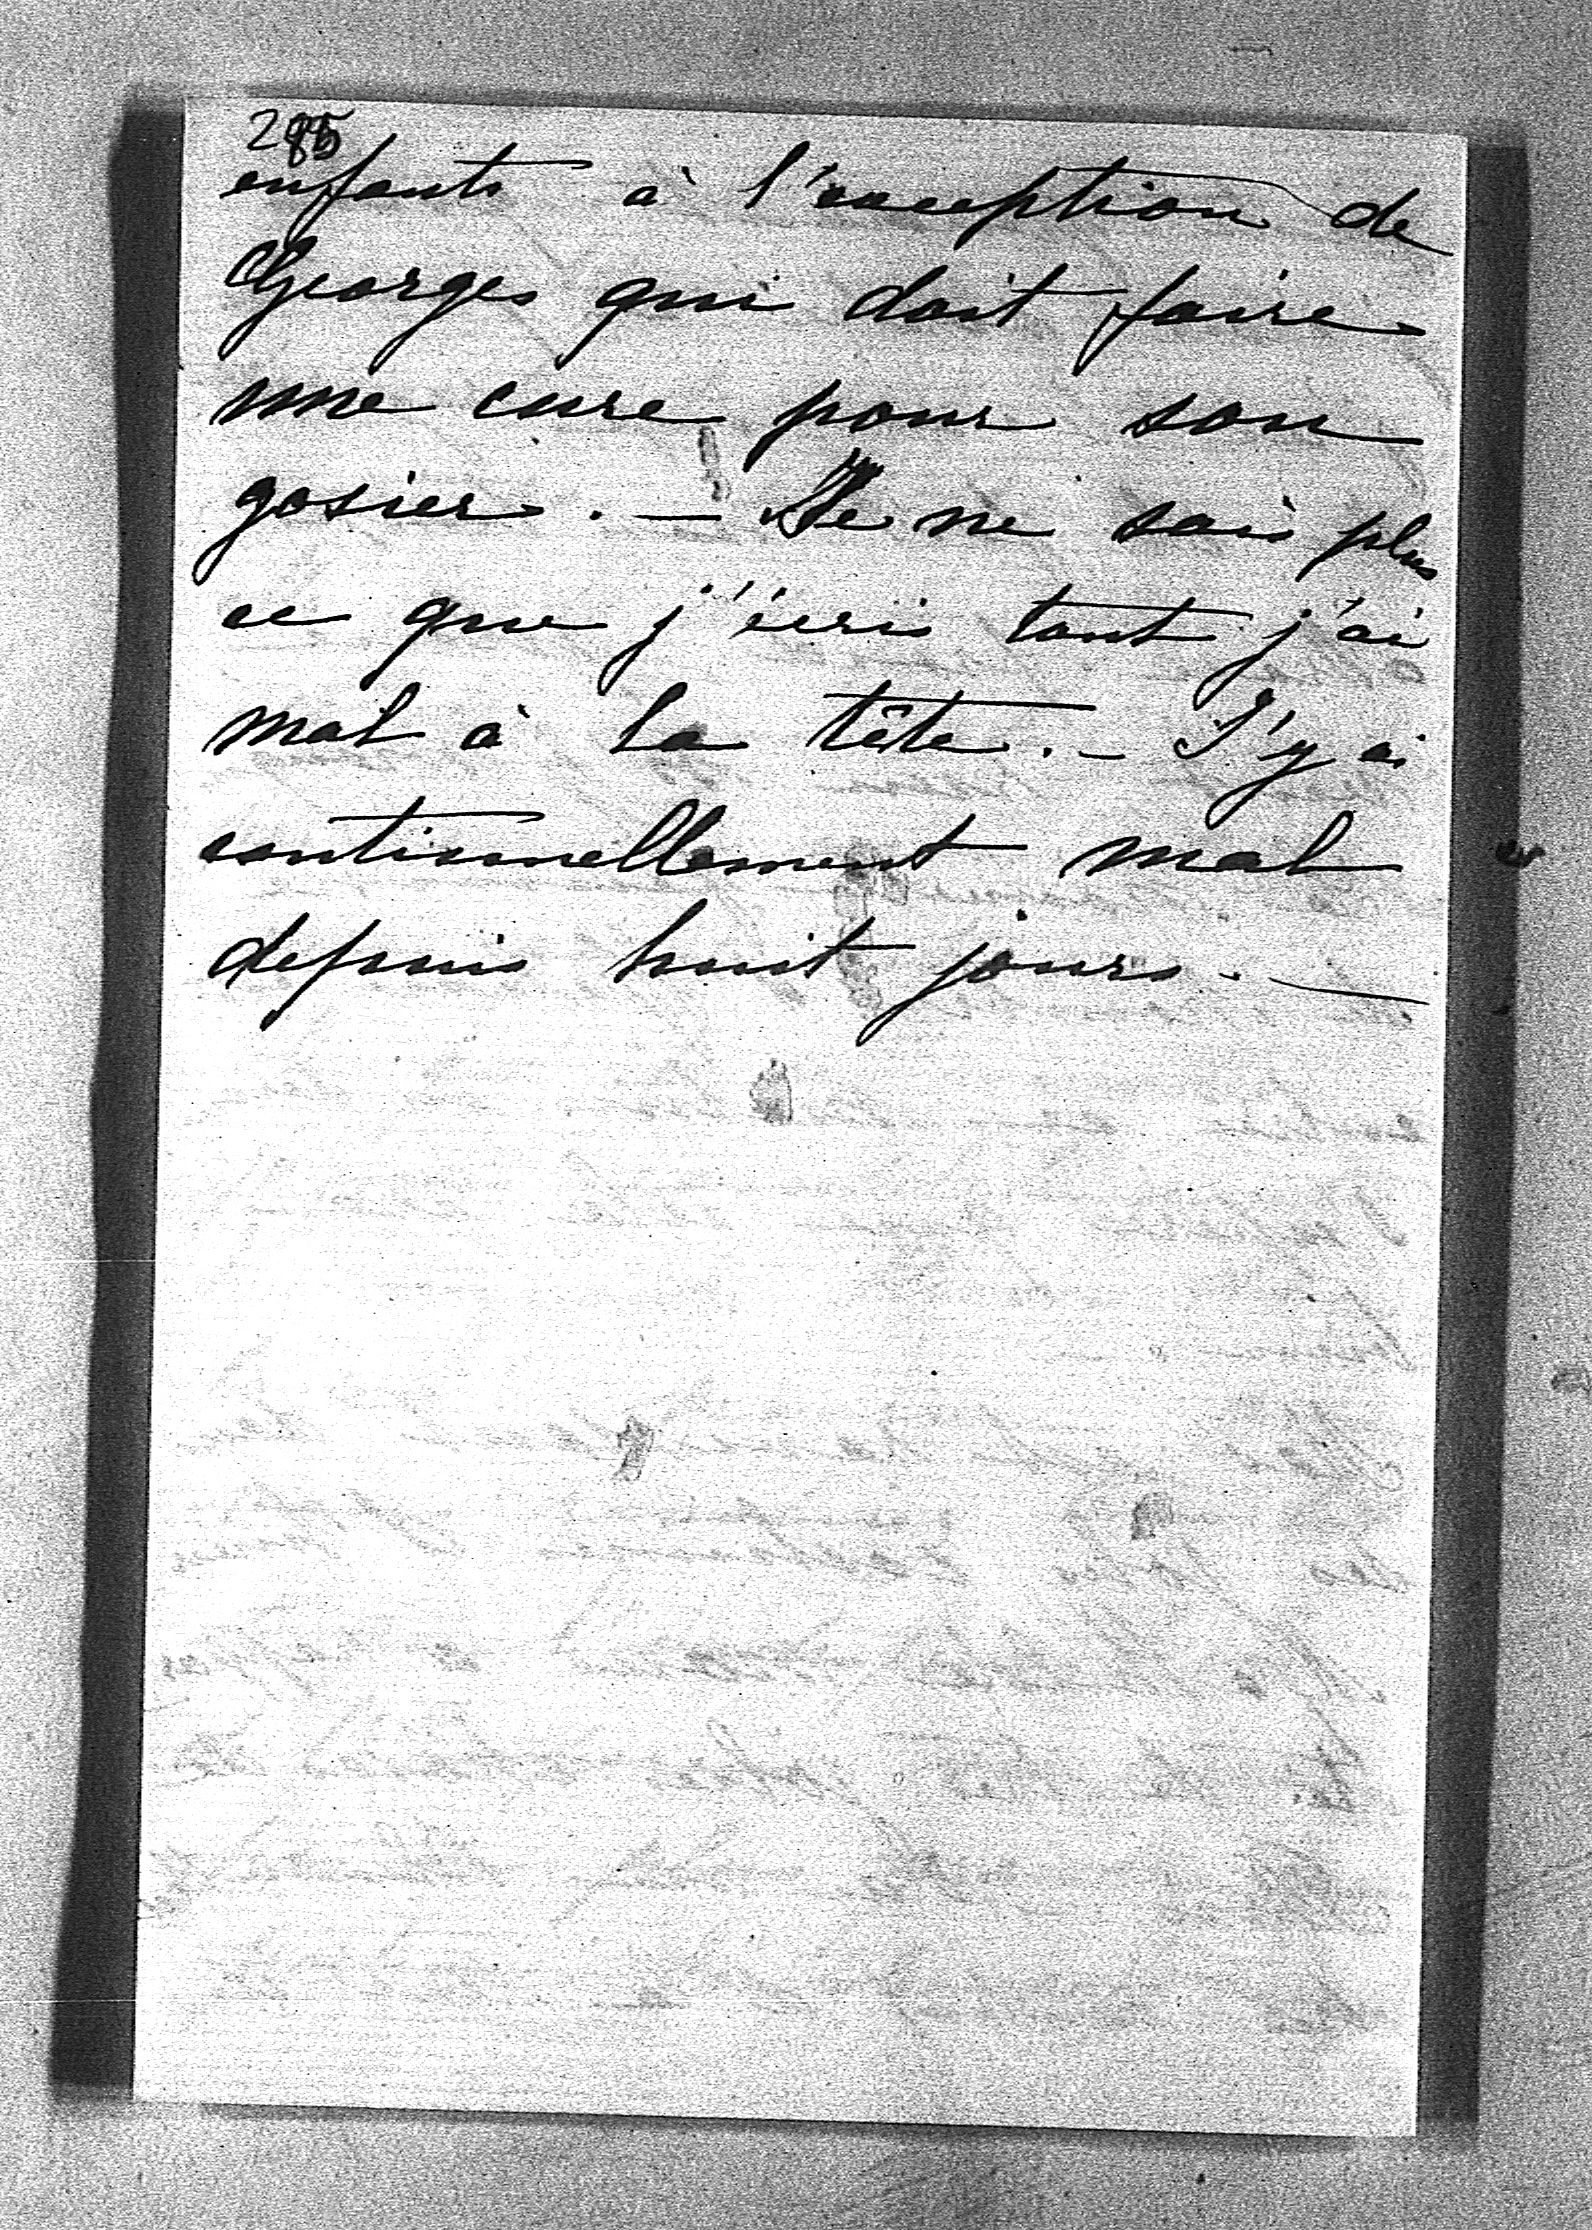 285
enfants à l'exception de
Georges qui doit faire
une cure pour son
gosier. — Je ne sais plus
ce que j'écris tant j'ai
mal à la tête. — J'y ai
continuellement mal
depuis huit jours. —